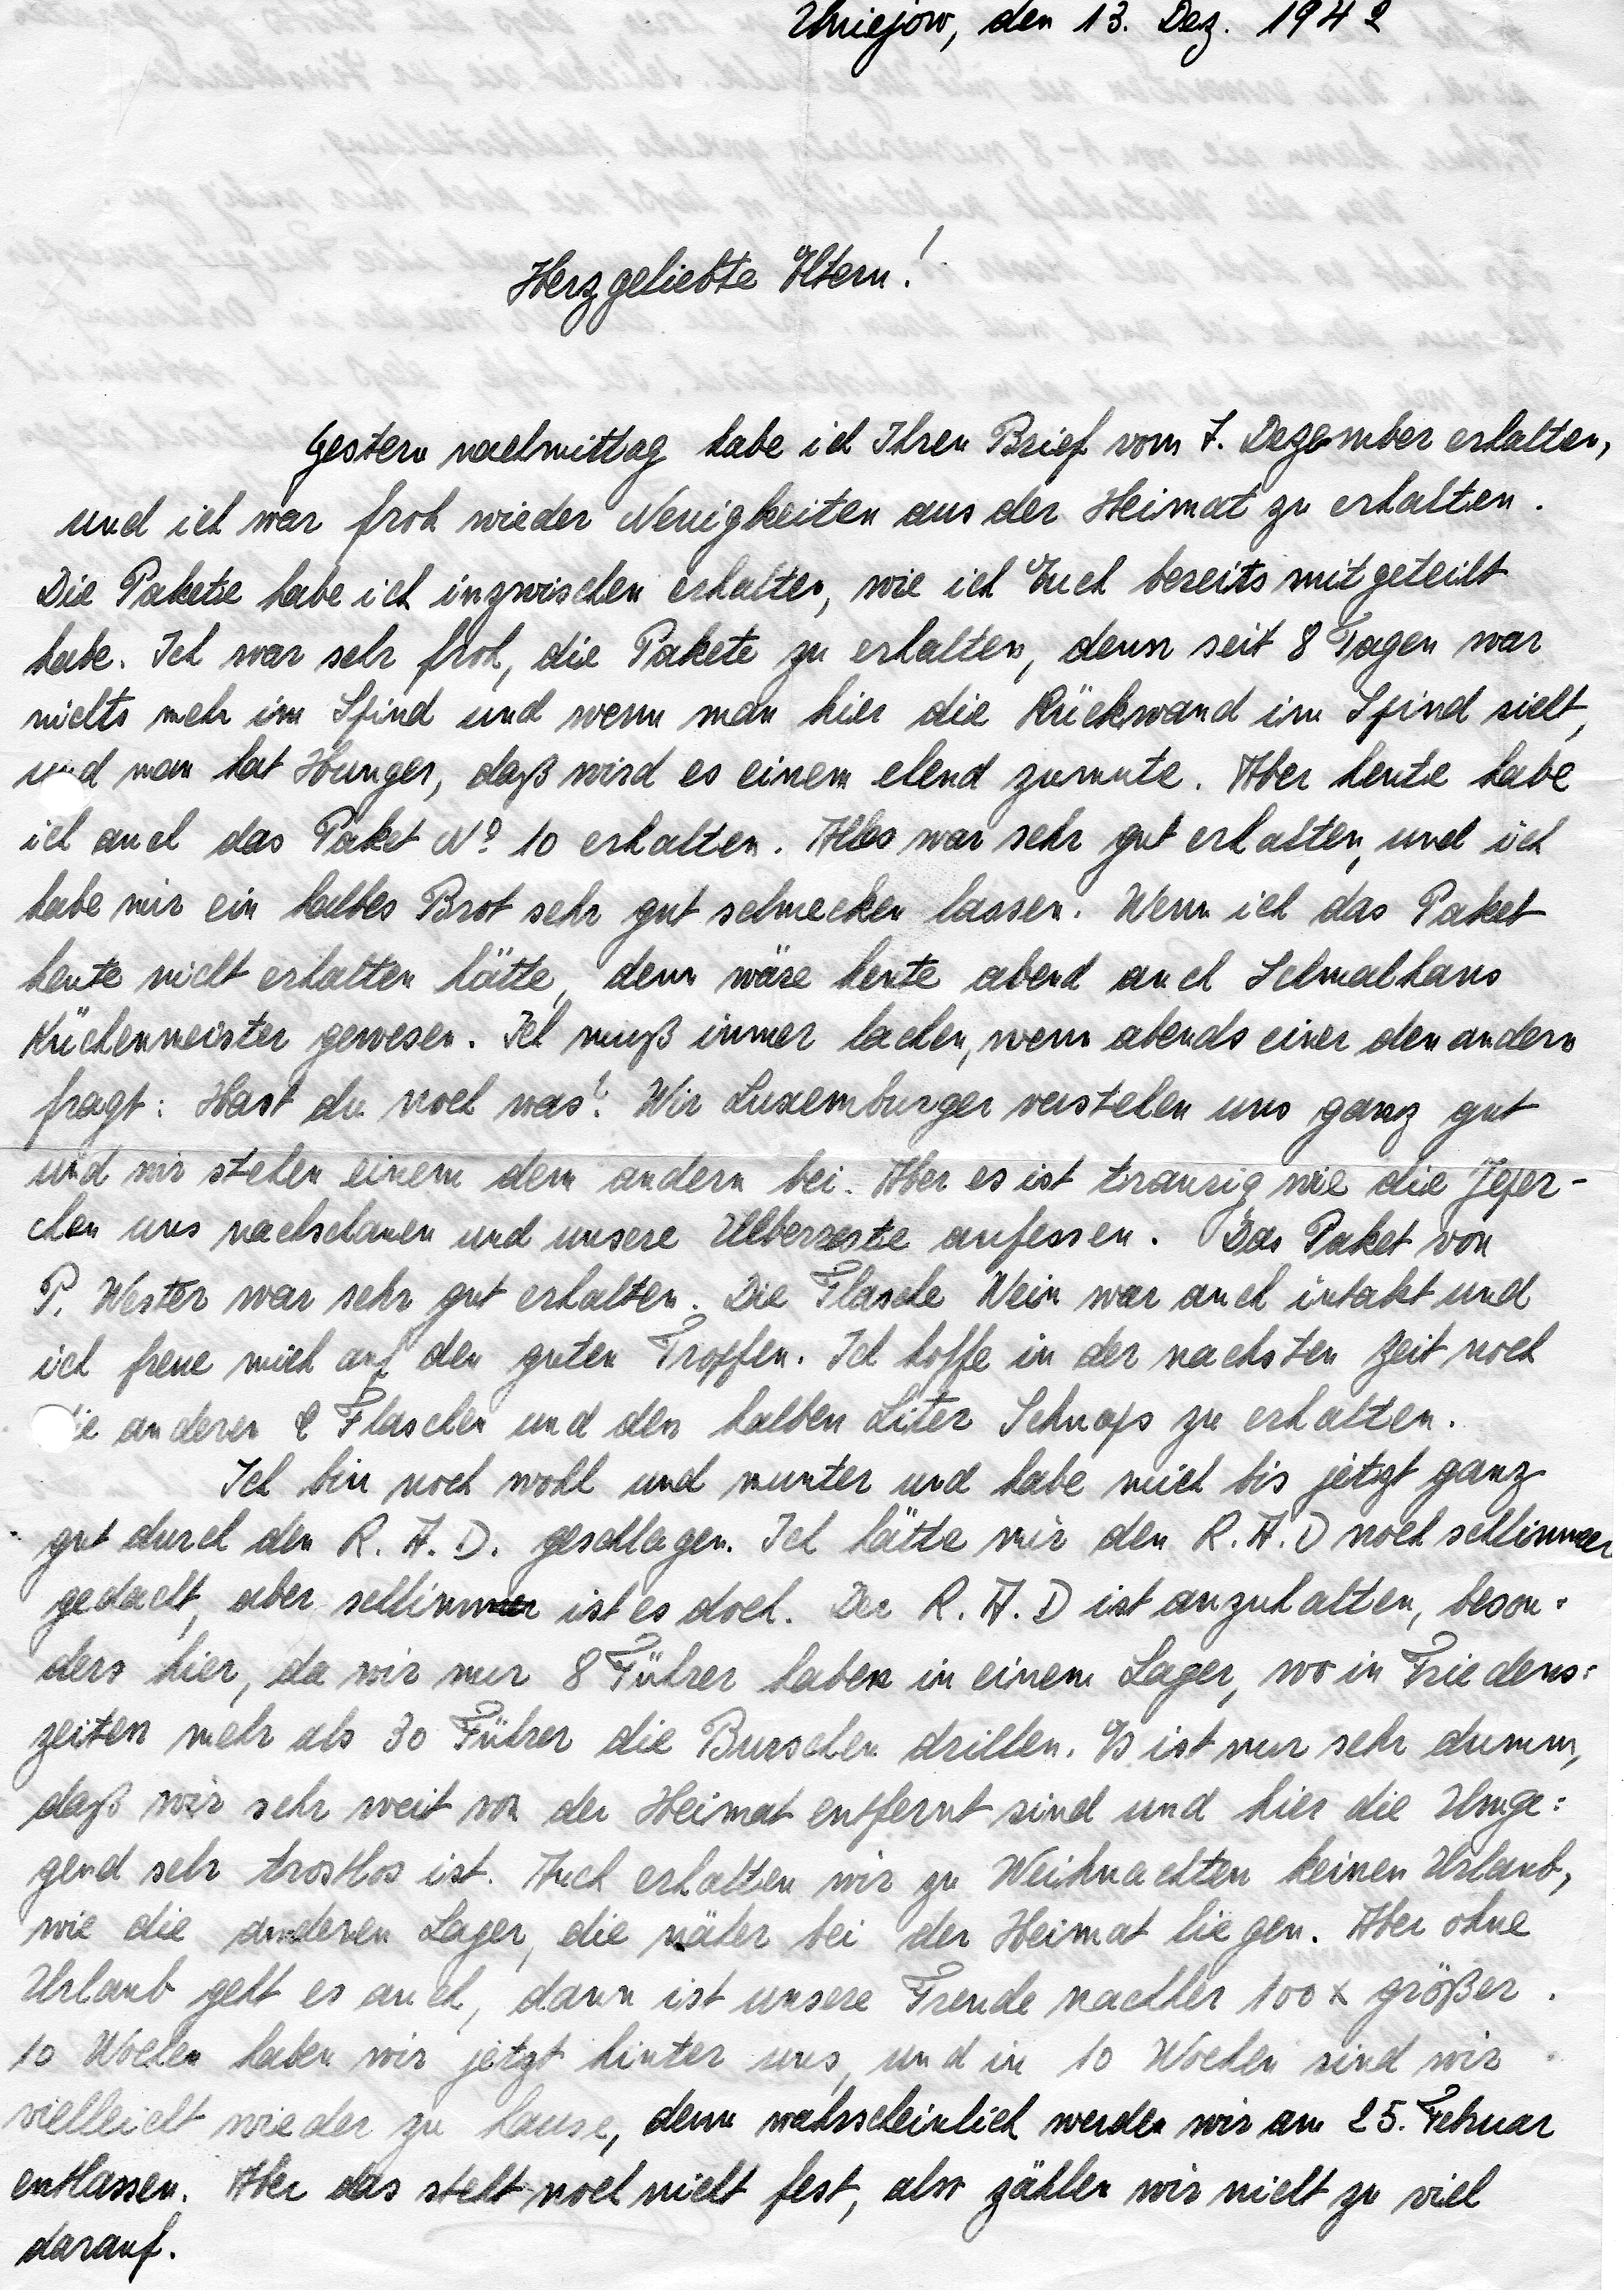 Uniejow, den 13. Dez. 1942
Herzgeliebte Eltern!
Gestern nachmittag habe ich Ihren Brief vom 7. Dezember erhalten,
und ich war froh wieder Neuigkeiten aus der Heimat zu erhalten.
Die Pakete habe ich inzwischen erhalten, wie ich Euch bereits mitgeteilt
habe. Ich war sehr froh, die Pakete zu erhalten, denn seit 8 Tagen war
nichts mehr im Spind und wenn man hier die Rückwand im Spind sieht,
und man hat Hunger, daß wird es einem elend zumute. Aber heute habe
ich auch das Paket No 10 erhalten. Alles war sehr gut erhalten, und ich
habe mir ein halbes Brot sehr gut schmecken lassen. Wenn ich das Paket
heute nicht erhalten hätte, denn wäre heute abend auch Schmalhans
Küchenmeister gewesen. Ich muß immer lachen, wenn abends einer den andern
fragt: Hast du noch was? Wir Luxemburger verstehen uns ganz gut
und wir stehen einem dem andern bei. Aber es ist traurig wie die
uns nachschauen und unsere Ueberreste aufessen. Das Paket von
P. Wester war sehr gut erhalten. Die Flasche Wein war auch intakt und
ich freue mich auf den guten Tropfen. Ich hoffe in der nachsten Zeit noch
die anderen 2 Flaschen und den halben Liter Schnaps zu erhalten.
Ich bin noch wohl und munter und habe mich bis jetzt ganz
gut durch den R. A. D. geschlagen. Ich hätte mir den R. A. D noch schlimmer
gedacht, aber schlimmer ist es doch. Der R. A. D ist anzuhalten, beson=
ders hier, da wir nur 8 Führer haben in einem Lager, wo in Friedens=
zeiten mehr als 30 Führer die Burschen drillen. Es ist nur sehr dumm,
daß wir sehr weit von der Heimat entfernt sind und hier die Umge=
gend sehr trostlos ist. Auch erhalten wir zu Weihnachten keinen Urlaub,
wie die anderen Lager, die näher bei der Heimat liegen. Aber ohne
Urlaub geht es auch, dann ist unsere Freude nachher 100 x größer.
10 Wochen haben wir jetzt hinter uns, und in 10 Wochen sind wir
vielleicht wieder zu hause, denn wahrscheinlich werden wir am 25. Februar
entlassen. Aber das steht noch nicht fest, also zählen wir nicht zu viel
darauf.